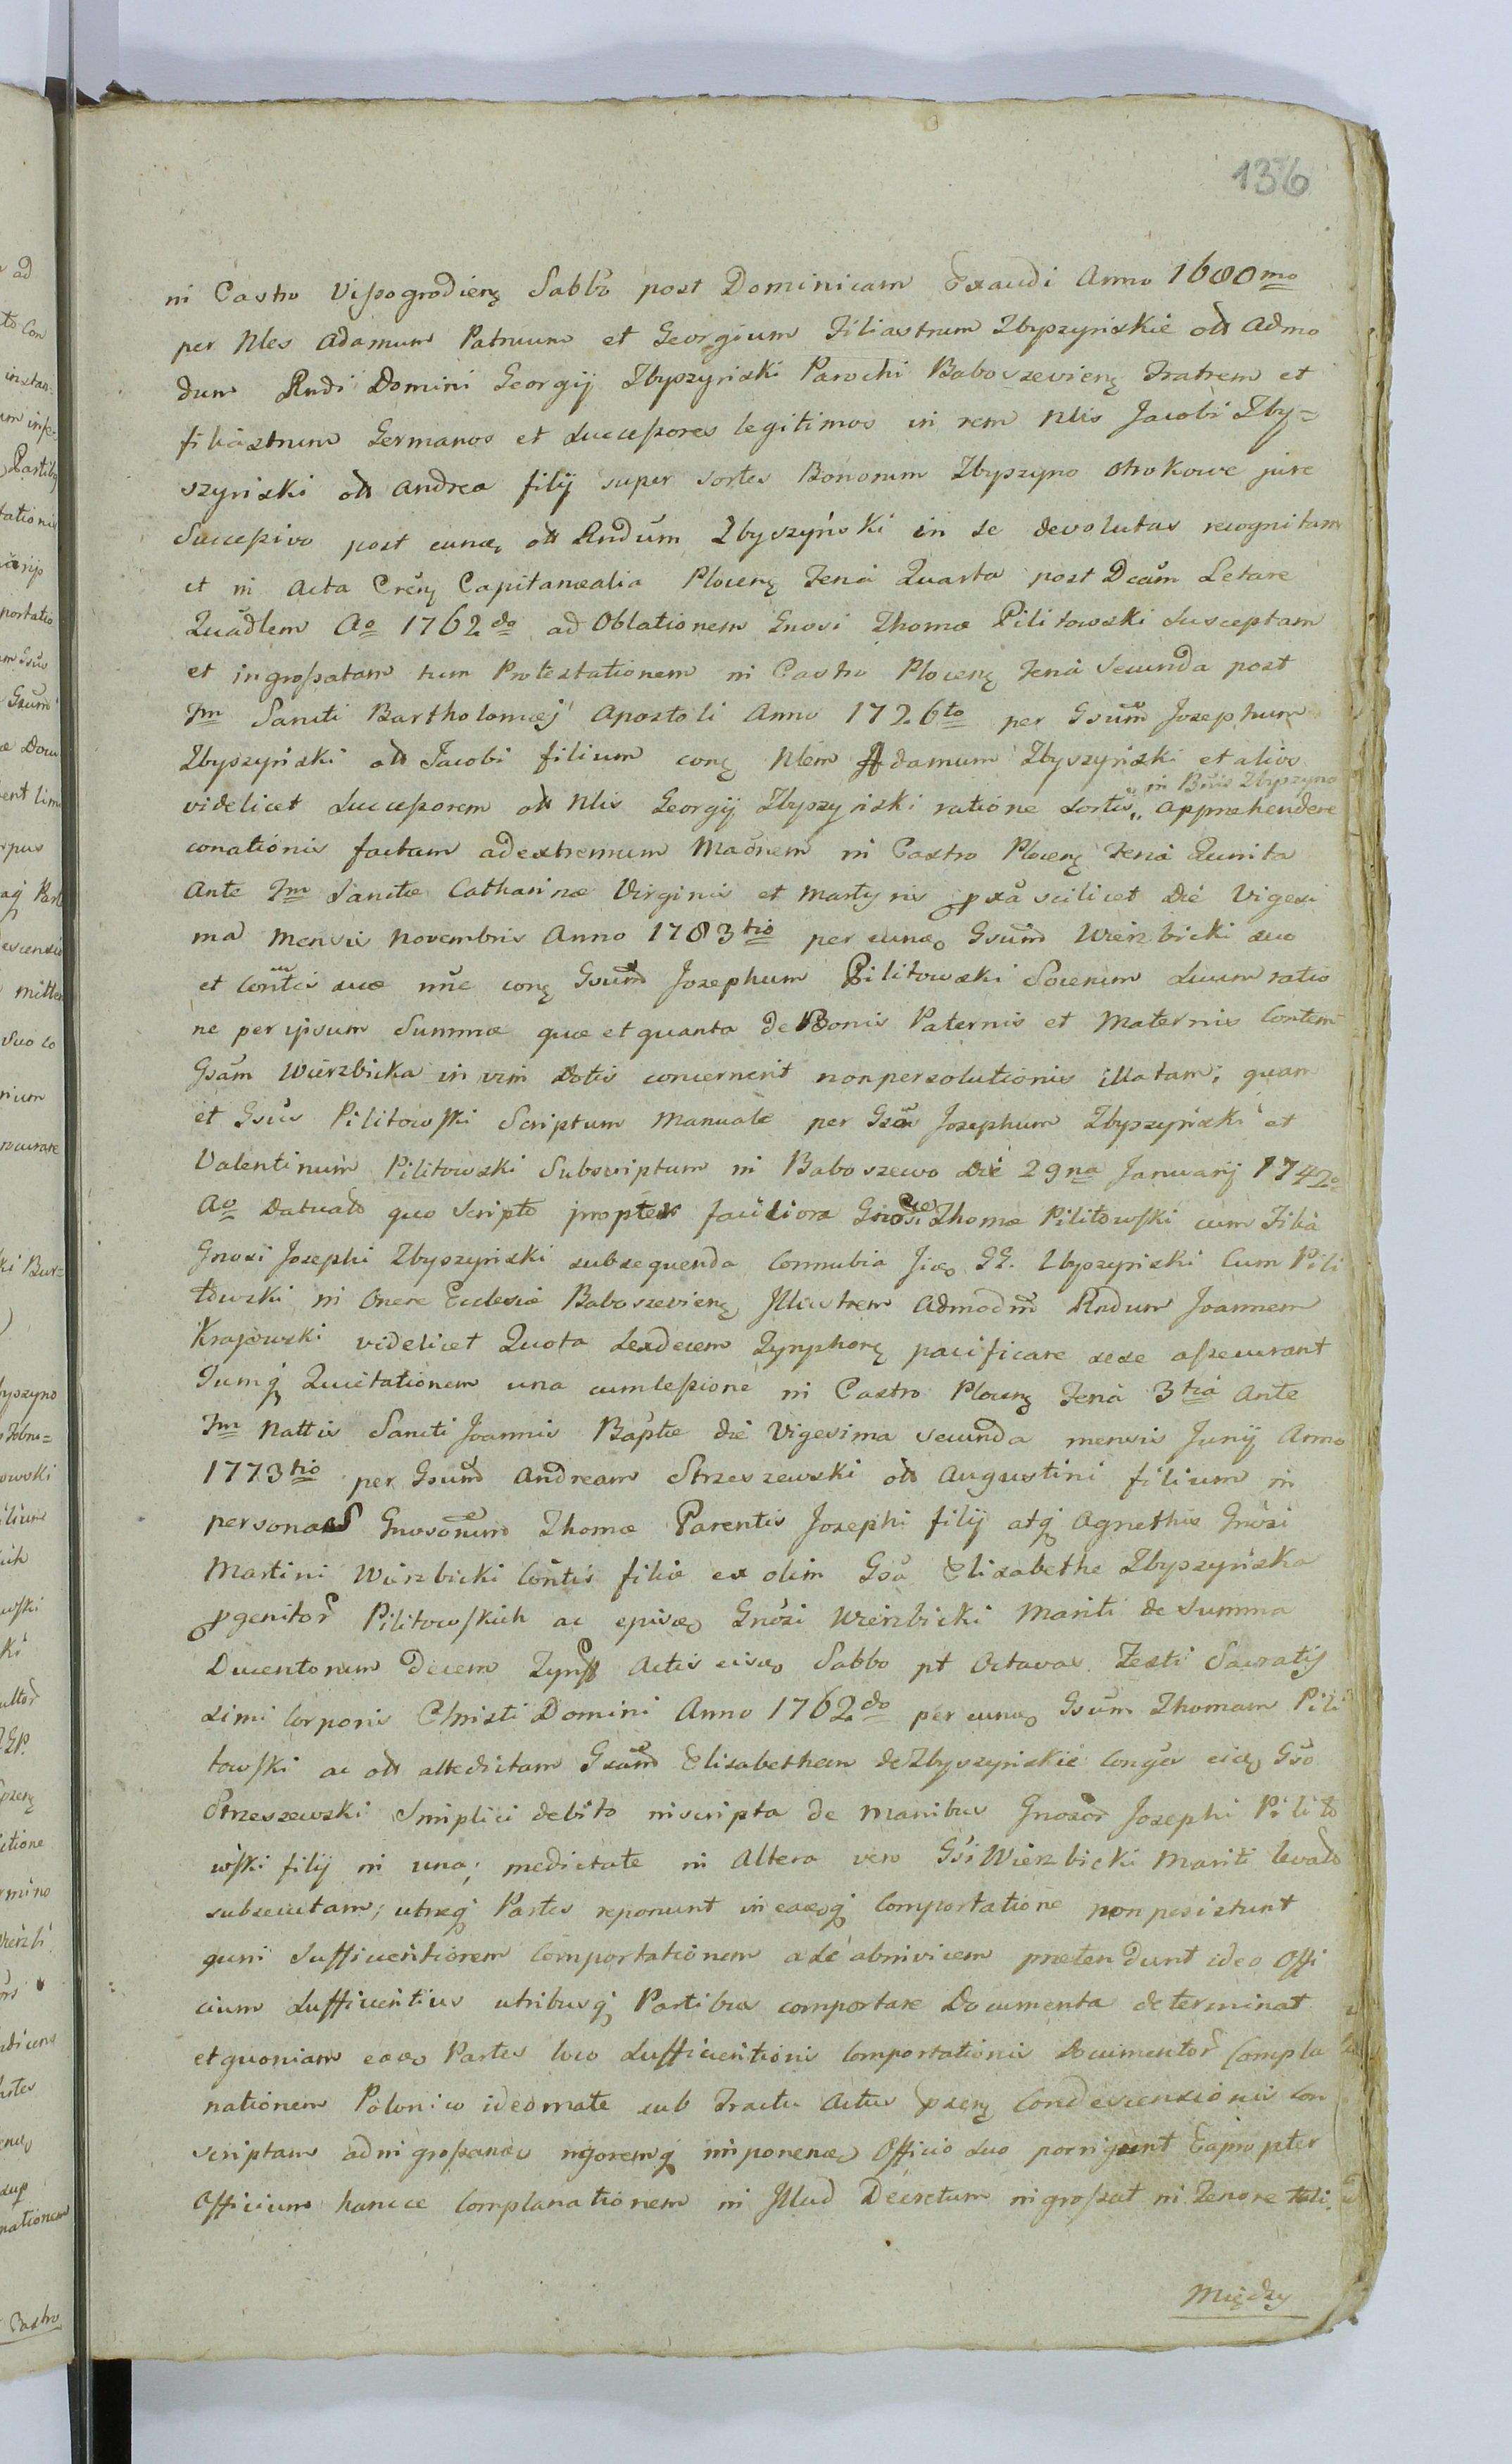 136
in Castro Vissogrodien̨ Sabbo post Dominicam Exaudi Anno 1680mo
per Nles Adamum Patruum et Georgium Filiastrum Zbyszynskie oł Admo
dum Rndi Domini Georgij Zbyszynski Parochi Baboszevien̨ Fratrem et
filiastrum Germanos et Successores legitimos in rem Nlis Jacobi Zby=
szynski oł Andrea filij super sortes Bonorum Zbyszyno Otrokowe jure
Successivo post eund oł Rndum Zbyszyński in se devolutas recognitam
et in Acta Cren̨ Capitanealia Plocen̨ Feria Quarta post Dcam Letare
Quadlem Ao 1762do ad Oblationem Gnosi Thomæ Pilitowski Susceptam
et ingrossatam tum Protestationem in Castro Plocen̨ Feria Secunda post
Fm Sancti Bartholomæj Apostoli Anno 1726to per Gsum Josephum
Zbyszyński oł Jacobi filium con̨ Nlem Adamum Zbyszyński et alios
in Bnis Zbyszyno
videlicet Successorem oł Nlis Georgij Zbyszyński ratione Sortis,, apprehendere
conationis factam ad extremum Maonem in Castro Plocen̨ Feria Quinta
Ante Fm Sanctæ Catharinæ Virginis et Martyris pxa scilicet Die Vigesi
ma Mensis Novembris Anno 1783tio per eund Gsum Wierzbicki suo
et Contis suæ nne con̨ Gsum Josephum Pilitowski Socerum Suum ratio
ne per ipsum Summæ quæ et quanta de Bonis Paternis et Maternis Contem
Gsam Wierzbicka in vim Dotis concernerit non persolutionis illatam; quam
et Gsus Pilitowski Scriptum Manuale per Gsos Josephum Zbyszyński et
Valentinum Pilitowski Subscriptum in Baboszewo Die 29na Januarij 1742o
Ao Datuał quo Scripto propter faciliora Gnosi Thomæ Pilitowski cum Filia
Gnosi Josephi Zbyszyński subsequenda Connubia Jid GG. Zbyszyński Cum Pili
towski in Onere Ecclesiæ Baboszevien̨ Illustrem Admodm Rndum Joannem
Krajewski videlicet Quota Sexdecem Tynphon̨ pacificare sese assecurant
Dumq Quietationem una cum Cessione in Castro Plocen̨ Feria 3tia Ante
Fm Nattis Sancti Joannis Baptæ die Vigesima secunda mensis Junij Anno
1773tio per Gsum Andream Strzeszewski oł Augustini filium in
personas Gnosorum Thomæ Parentis Josephi filij atq Agnethis Gnosi
Martini Wierzbicki Contis filiæ ex olim Gsa Elisabethe Zbyszyńska
pgenitor Pilitowskich ac episd Gnosi Wierzbicki Mariti de Summa
Ducentorum Decem Tynff Actis eisd Sabbo pt Octavas Festi Sacratis
simi Corporis Christi Domini Anno 1762do per eund Gsum Thomam Pili
towski ac oł attedictam Gsam Elisabetham de Zbyszyńskie Conges eid Gso
Strzeszewski Simplici debito inscripta de Manibus Gnosor Josephi Pilito
wski filij in una; medietate in Altera vero Gsi Wierzbicki Mariti levał
subsecutam; utræq Partes reponunt in eaq Comportatione non persistunt
quin Sufficientiorem Comportationem a se abinvicem prætendunt ideo Offi
cium Sufficientius utribusq Partibus comportare Documenta determinat
et quoniam eæd Partes loco Sufficientioris Comportationis Documentor Compla
nationem Polonico ideomate sub Tractu Actus psen̨ Condescensionis Con
scriptam ad ingrossand rigoremq imponend Officio Suo porrigunt Eapropter
Officium hancce Complanationem in Illud Decretum ingrossat in Tenore tali.
Między